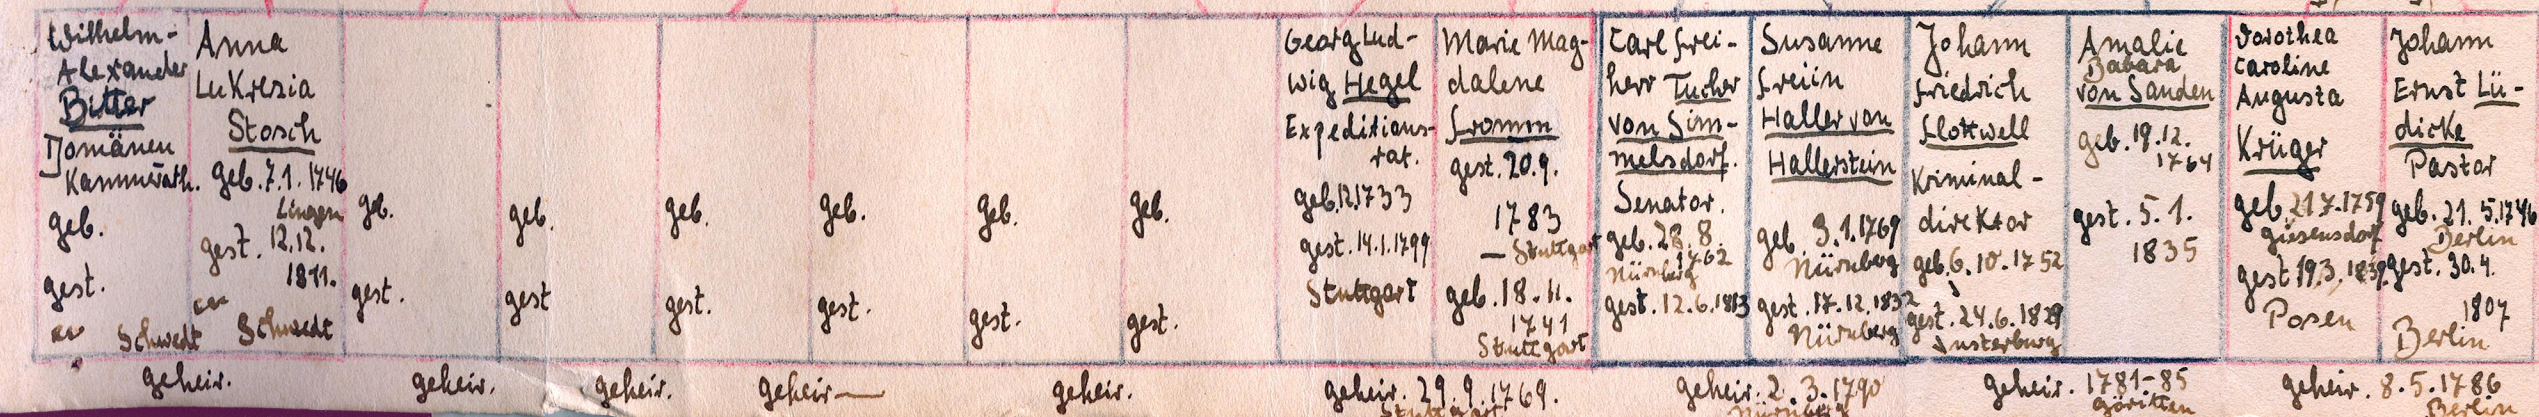 Wilhelm-
Alexander
Bitter
Domänen
Kammerath.
geb.
gest.
Schwedt
Anna
Lukrezia
Stosch
geb. 7.1.1746
Lingen
gest. 12.12.
1811.
Schwedt
geb.
gest.
geb.
gest
geb.
gest.
geb.
gest.
geb.
gest.
geb.
gest.
Georg Lud-
wig Hegel
Expeditions-
rat.
geb. 12.1733
gest. 14.1.1799
Stuttgart
Marie Mag-
dalene
Fromm
gest. 20.9.
1783
— Stuttgart
geb. 18.11.
1741
Stuttgart
Carl Frei-
herr Tucher
von Sim-
melsdorf.
Senator.
geb. 28.8.
1762
Nürnberg
gest. 12.6.1813
Susanne
Freiin
Haller von
Hallerstein
geb. 3.1.1769
Nürnberg
gest. 17.12.1832
Nürnberg
Johann
Friedrich
Flottwell
Kriminal-
direktor
geb. 6.10.1752
gest. 24.6.1829
Insterburg
Amalie
Babara
von Sanden
geb. 19.12.
1764
gest. 5.1.
1835
Dorothea
Caroline
Augusta
Krüger
geb. 21.7.1759
Giesensdorf
gest. 19.3.1839.
Posen
Johann
Ernst Lü-
dicke
Pastor
geb. 21.5.1746
Berlin
gest. 30.4.
1807
Berlin
geheir.
geheir.
geheir.
geheir—
geheir.
geheir. 29.9.1769.
Stuttgart
geheir. 2.3.1790
Nürnberg
geheir. 1781-85
Göritten
geheir. 8.5.1786
Berlin